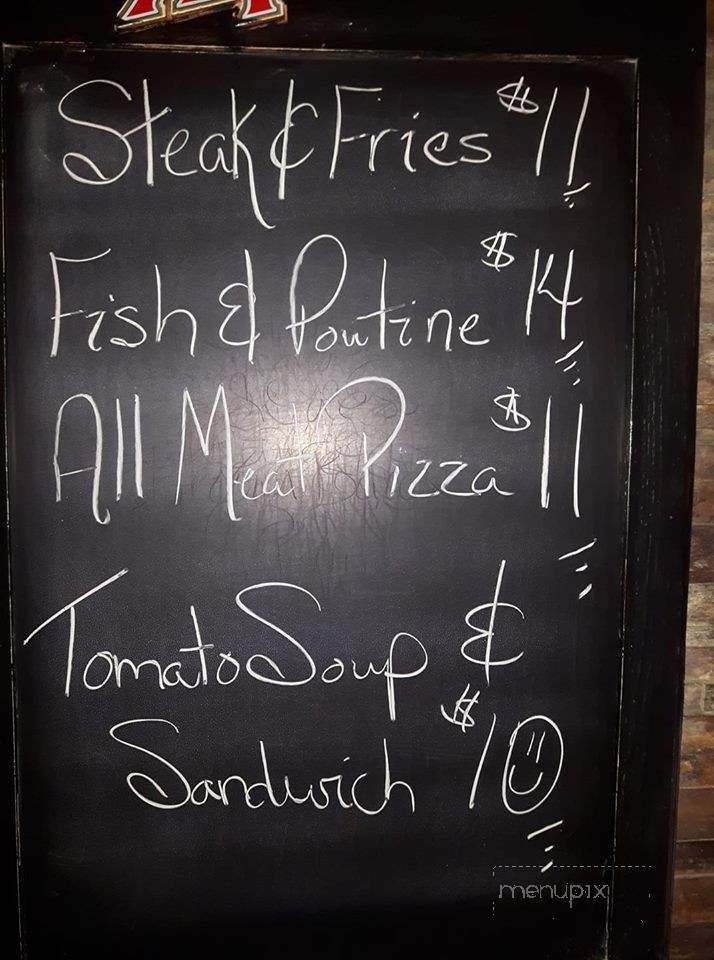 Steak & Fries $11
Fish & Poutine $14
All Meat Pizza $11
Tomato Soup &
Sandwich $10
menupix